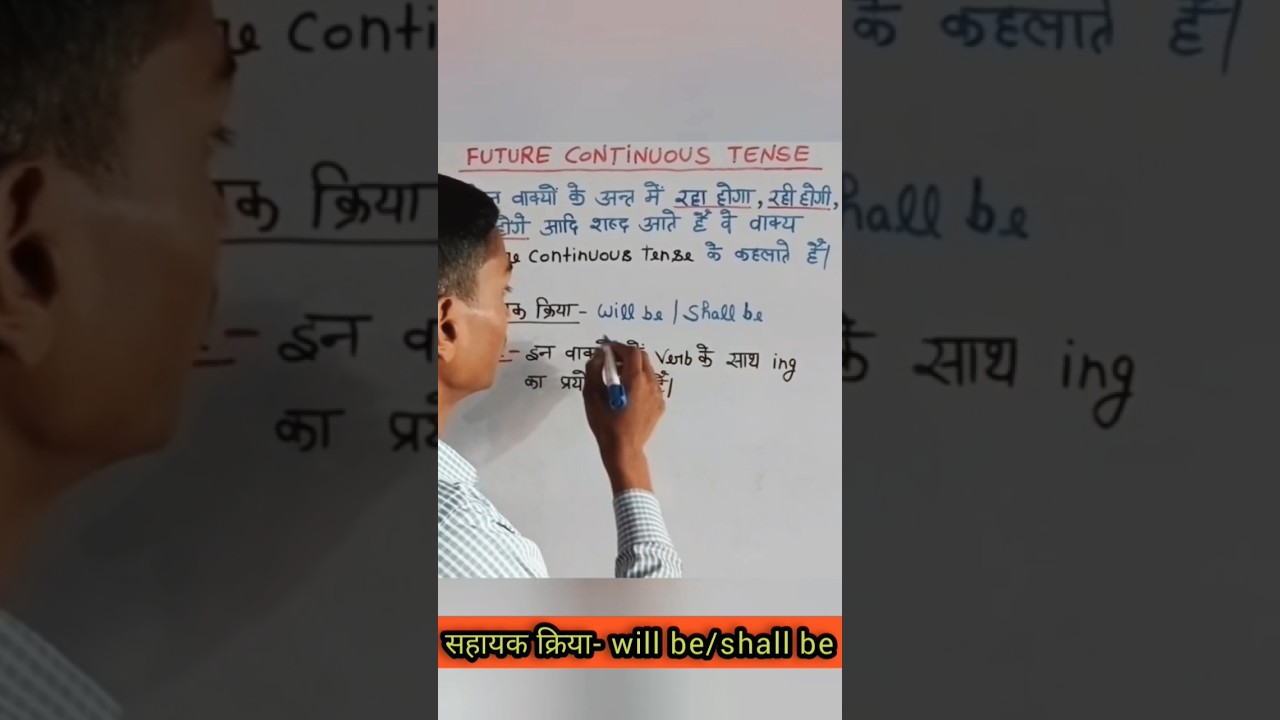 FUTURE CONTINUOUS TENSE
वाक्यों के अन्त में रहा होगा, रही होगी,
होंगे आदि शब्द आते हैं वे वाक्य
Continuous Tense के कहलाते हैं।
क्रिया - will be / Shall be
- इन verb के साथ ing
का हैं।
सहायक क्रिया- will be/shall be